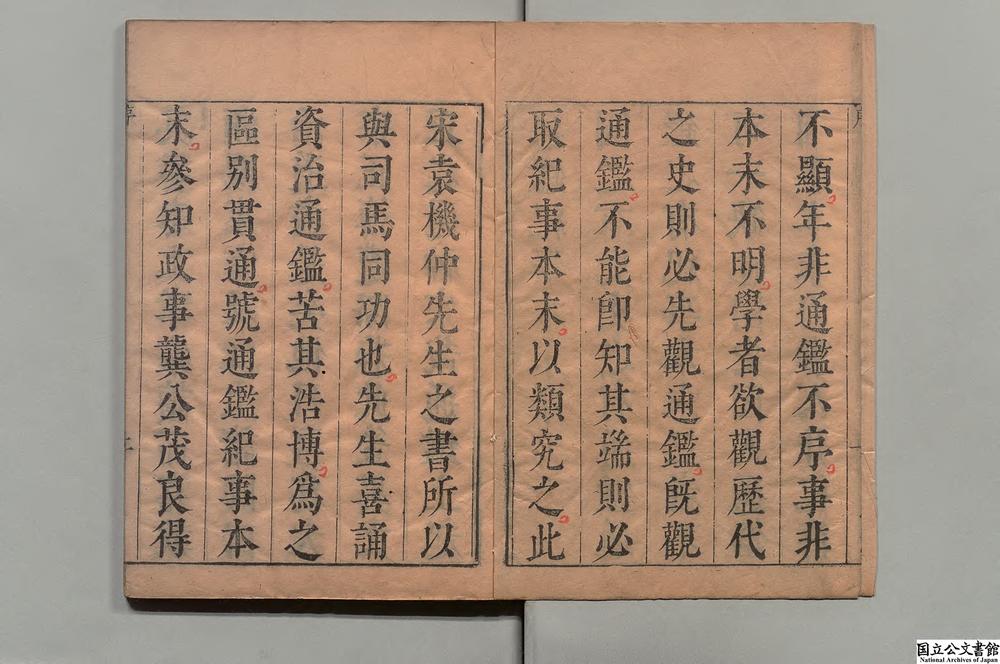 不顯年非通鑑不序事非
本末不明學者欲觀歷代
之史則必先觀通鑑旣觀
通鑑不能卽知其端則必
取紀事本末以類究之此
宋袁機仲先生之書所以
與司馬同功也先生喜誦
資治通鑑苦其浩博爲之
區别貫通號通鑑紀事本
末參知政事龔公茂良得
国立公文書館
National Archives of Japan